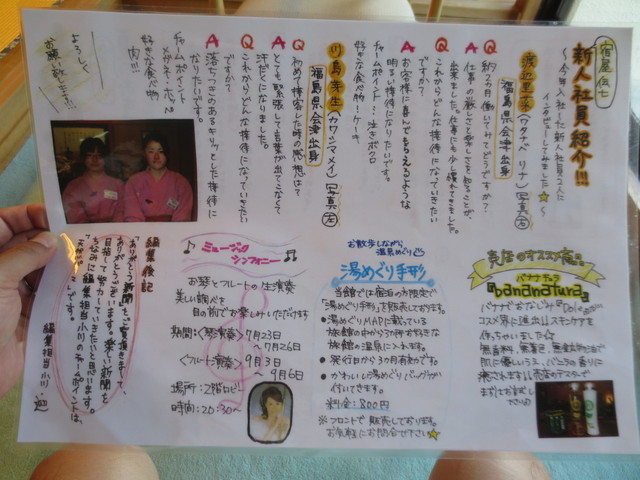 新人社員紹介!!!
～今年入社した新人社員2人に
インタビューしてみました☆～
渡辺里奈(ワタナベ リナ)(写真右)
福島県会津出身
Q 約2ヶ月働いてみてどうですか?
A 仕事の厳しさと楽しさを知ることが
出来ました。仕事にも少し慣れてきました。
Q これからどんな接待になっていきたい
ですか?
A お客様に喜んでもらえるような
明るい接待になりたいです。
チャームポイント…泣きボクロ
好きな食べ物…ケーキ
川島芽生(カワシマ メイ)(写真左)
福島県会津出身
Q 初めて接客した時の感想は?
A とても緊張して言葉が出てこなくて
汗だくになりました。
Q これからどんな接待になっていきたい
ですか?
A 落ちつきのあるキリッとした接待に
なりたいです。
チャームポイント
メガネ・ホッペ
好きな食べ物
肉!!!
よろしく
お願い致します!!
売店のオススメ商品
バナナチュラ
『bananatura』
バナナでおなじみ『Dole』が
コスメ界に進出!!スキンケアを
作っちゃいました☆
肌に優しいうえ、バナナの香りに
癒されます!!売店のテスターで
まずはお試し
下さい
お散歩しながら
温泉めぐり
湯めぐり手形
当館では宿泊の方限定で
「湯めぐり手形」を販売しております。
●湯めぐりMAPに載っている
旅館の中から3カ所お好きな
旅館の温泉に入れます。
●発行日から3ヶ月有効です。
●かわいい湯めぐりバッグが
付いてきます。
料金:800円
※フロントで販売しております。
お気軽にお問合せ下さい☆
ミュージック
シンフォニー
お琴とフルートの生演奏
美しい調べを
目の前でお楽しみいただけます
期間:〈琴演奏〉7月23日
～7月26日
〈フルート演奏〉9月3日
～9月6日
場所:2階ロビー
時間:20:30～
編集後記
「ありがとう新聞」をご覧頂きまして、
ありがとうございます。楽しい新聞を
目指して努力していきたいと思います。
ちなみに編集担当小川のチャームポイントは、
です。
編集担当 小川